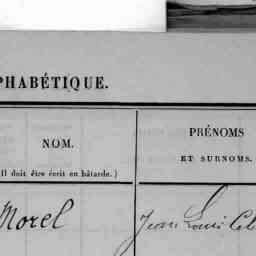 PHABÉTIQUE.
NOM.
Il doit être écrit en bâtarde.)
PRÉNOMS
ET SURNOMS.
Morel
Jean Louis